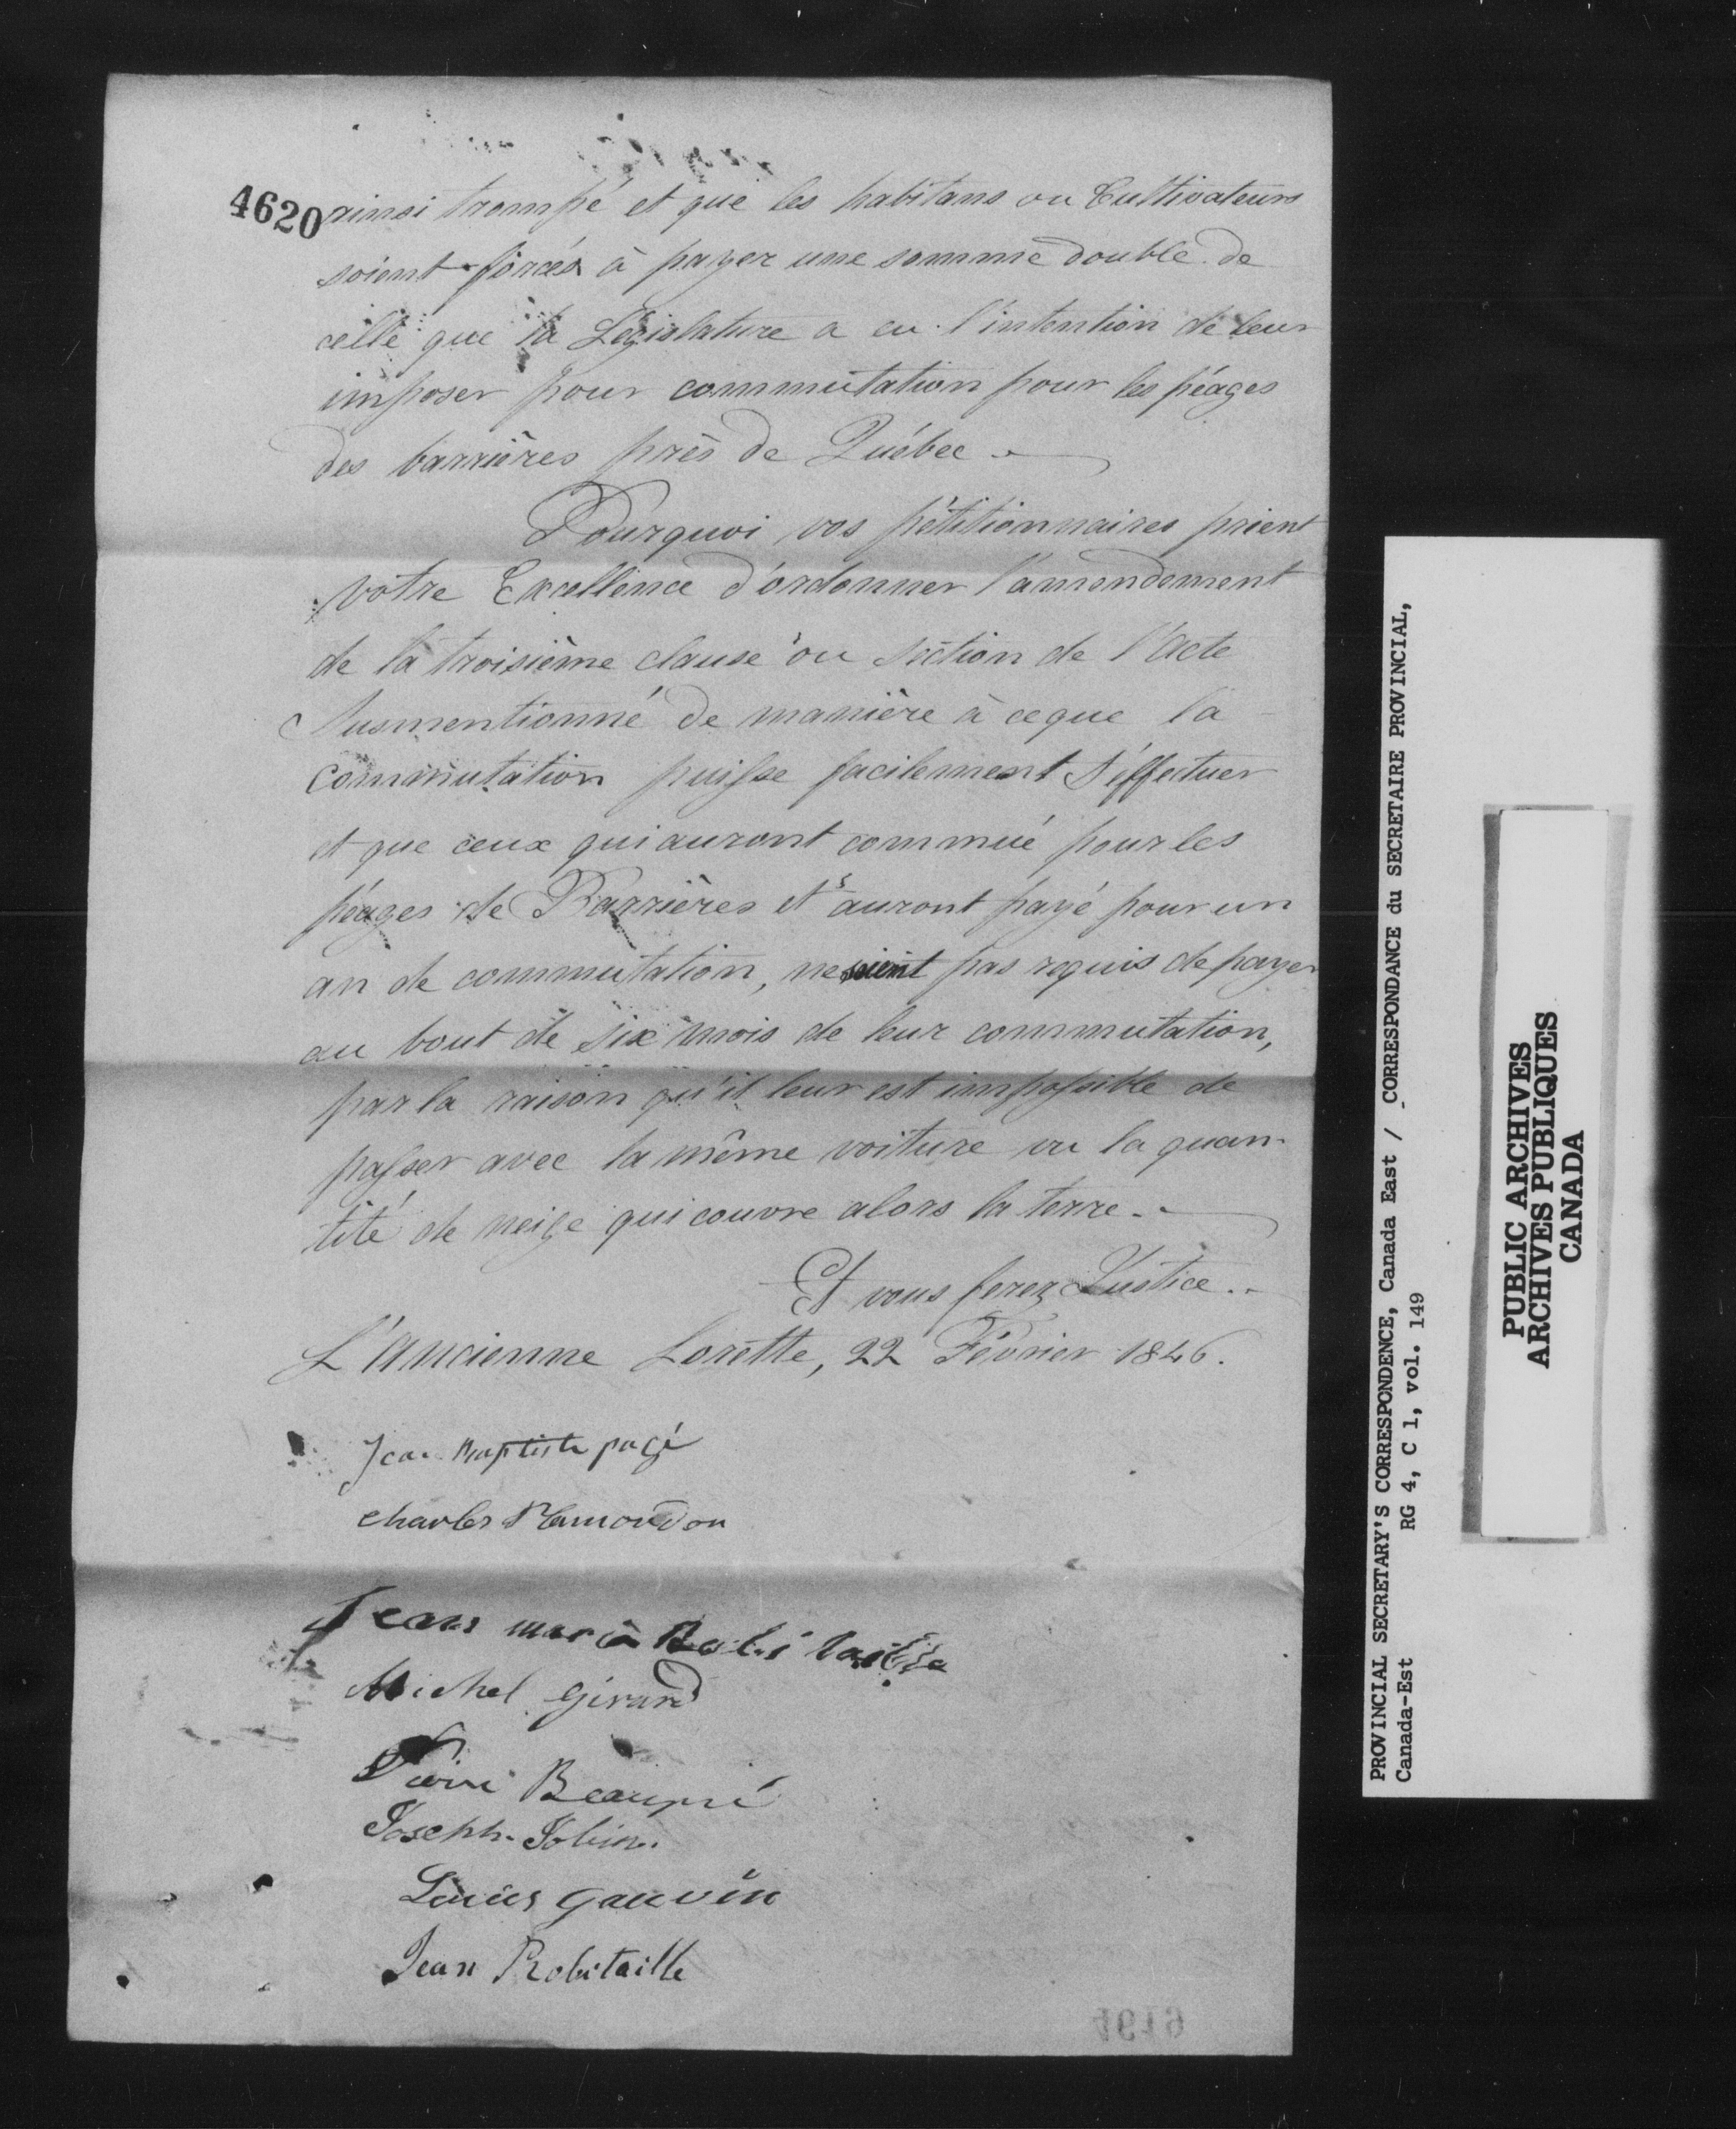 4620
ainsi trompé et que les habitans ou Cultivateurs
soient forcés à payer une somme double de
celle que la Législature a eu l'intention de leur
imposer pour commutation pour les péages
des barrières près de Québec
Pourquoi vos pétitionnaires prient
votre Excellence d'ordonner l'amendement
de la troisième clause ou section de l'Acte
Susmentionné de manière à ceque la
commutation puisse facilement s'éffectuer
et que ceux qui auront commué pour les
péages de Barrières et auront payé pour un
an de commutation, ne soient pas requis de payer
au bout de six mois de leur commutation,
par la raison qu'il leur est impossible de
passer avec la même voiture vu la quan-
tité de neige qui couvre alors la terre.
Et vous ferez Justice..
L'Ancienne Lorette, 22 Février 1846.
Jean Baptiste pagé
charles Plamondon
Jean marie Robitaille
Michel Girard
Pierre Beaupré
Joseph Jobin.
Louis gauvin
Jean Robitaille
4619
PROVINCIAL SECRETARY'S CORRESPONDENCE, Canada East / CORRESPONDANCE du SECRETAIRE PROVINCIAL,
Canada-Est RG 4, C 1, vol. 149
PUBLIC ARCHIVES
ARCHIVES PUBLIQUES
CANADA